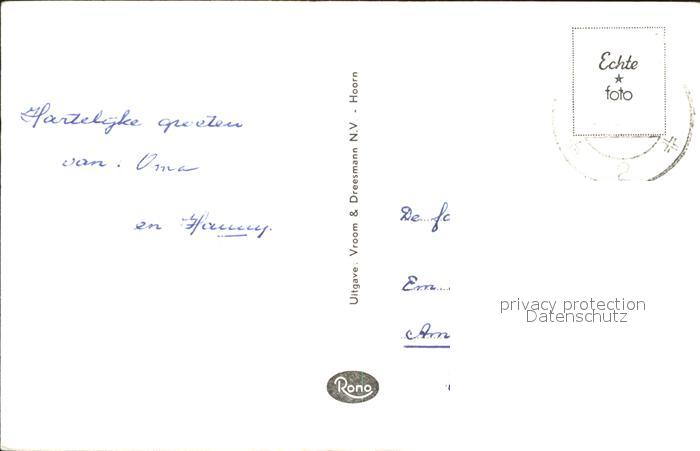 Hartelijke groeten
van. Oma
en Hanny.
Uitgave: Vroom & Dreesmann N.V. - Hoorn
Rono
Echte
foto
2
De
Em
Am
privacy protection
Datenschutz